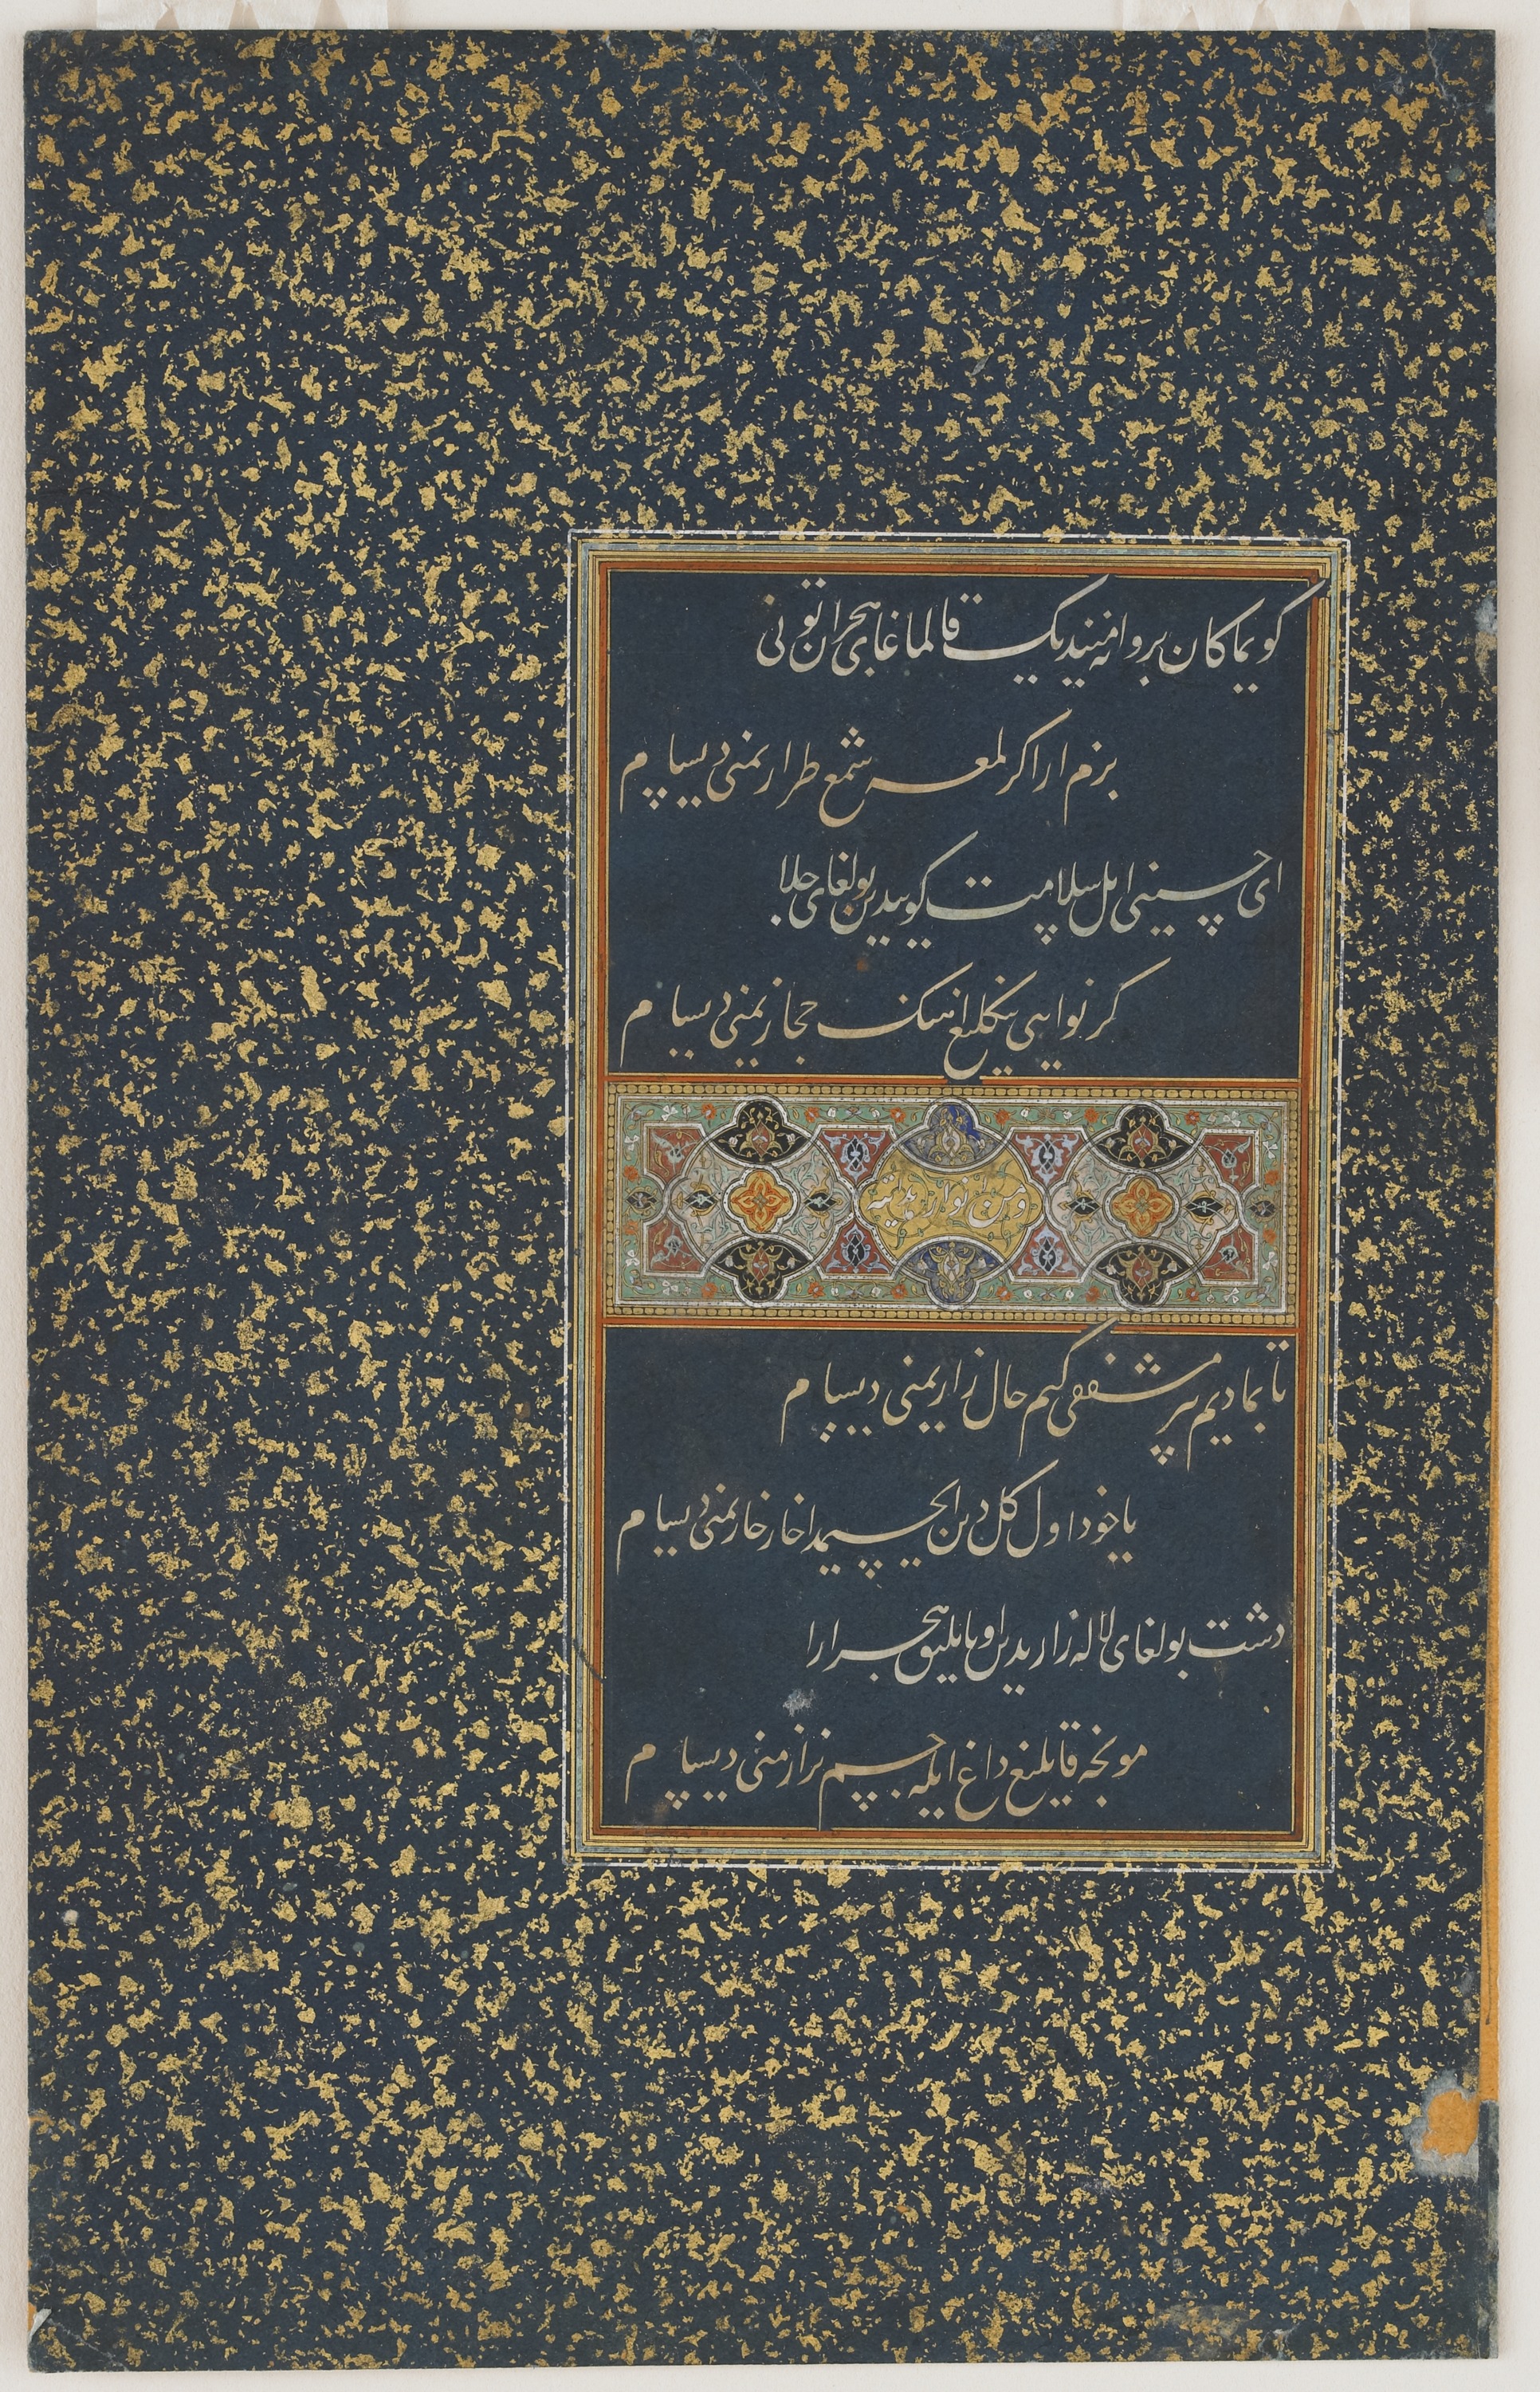 کویماکان پروانه نیدیک قالماغای هجران تونی
بزم ارا کر لمعه شمع طرازیمنی دیسام
ای حسینی اهل سلامت کوییدین بولغای جلا
کر نوایی ینکلیغ حجازیمنی دیسام
وله من انوار هدایته
تابمادیم بر مشفقی کیم حال زاریمنی دیسام
یا خود اول کلدین ایچیمدا خار خاریمنی دیسام
دشت بولغای لاله زاریدین اویاتلیق هجر ارا
مونجه قانلیغ داغ ایله جسم نزاریمنی دیسام